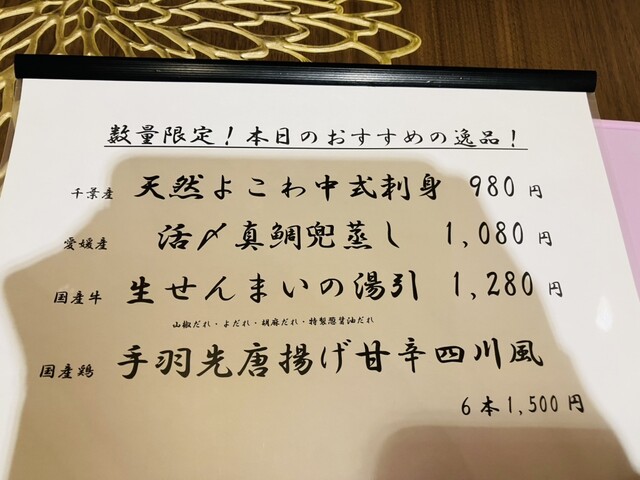 数量限定！本日のおすすめの逸品！
千葉産 天然よこわ中式刺身 980円
愛媛産 活〆真鯛兜蒸し 1,080円
国産牛 生せんまいの湯引 1,280円
山椒だれ・よだれ・胡麻だれ・特製葱醤油だれ
国産鶏 手羽先唐揚げ甘辛四川風
6本1,500円